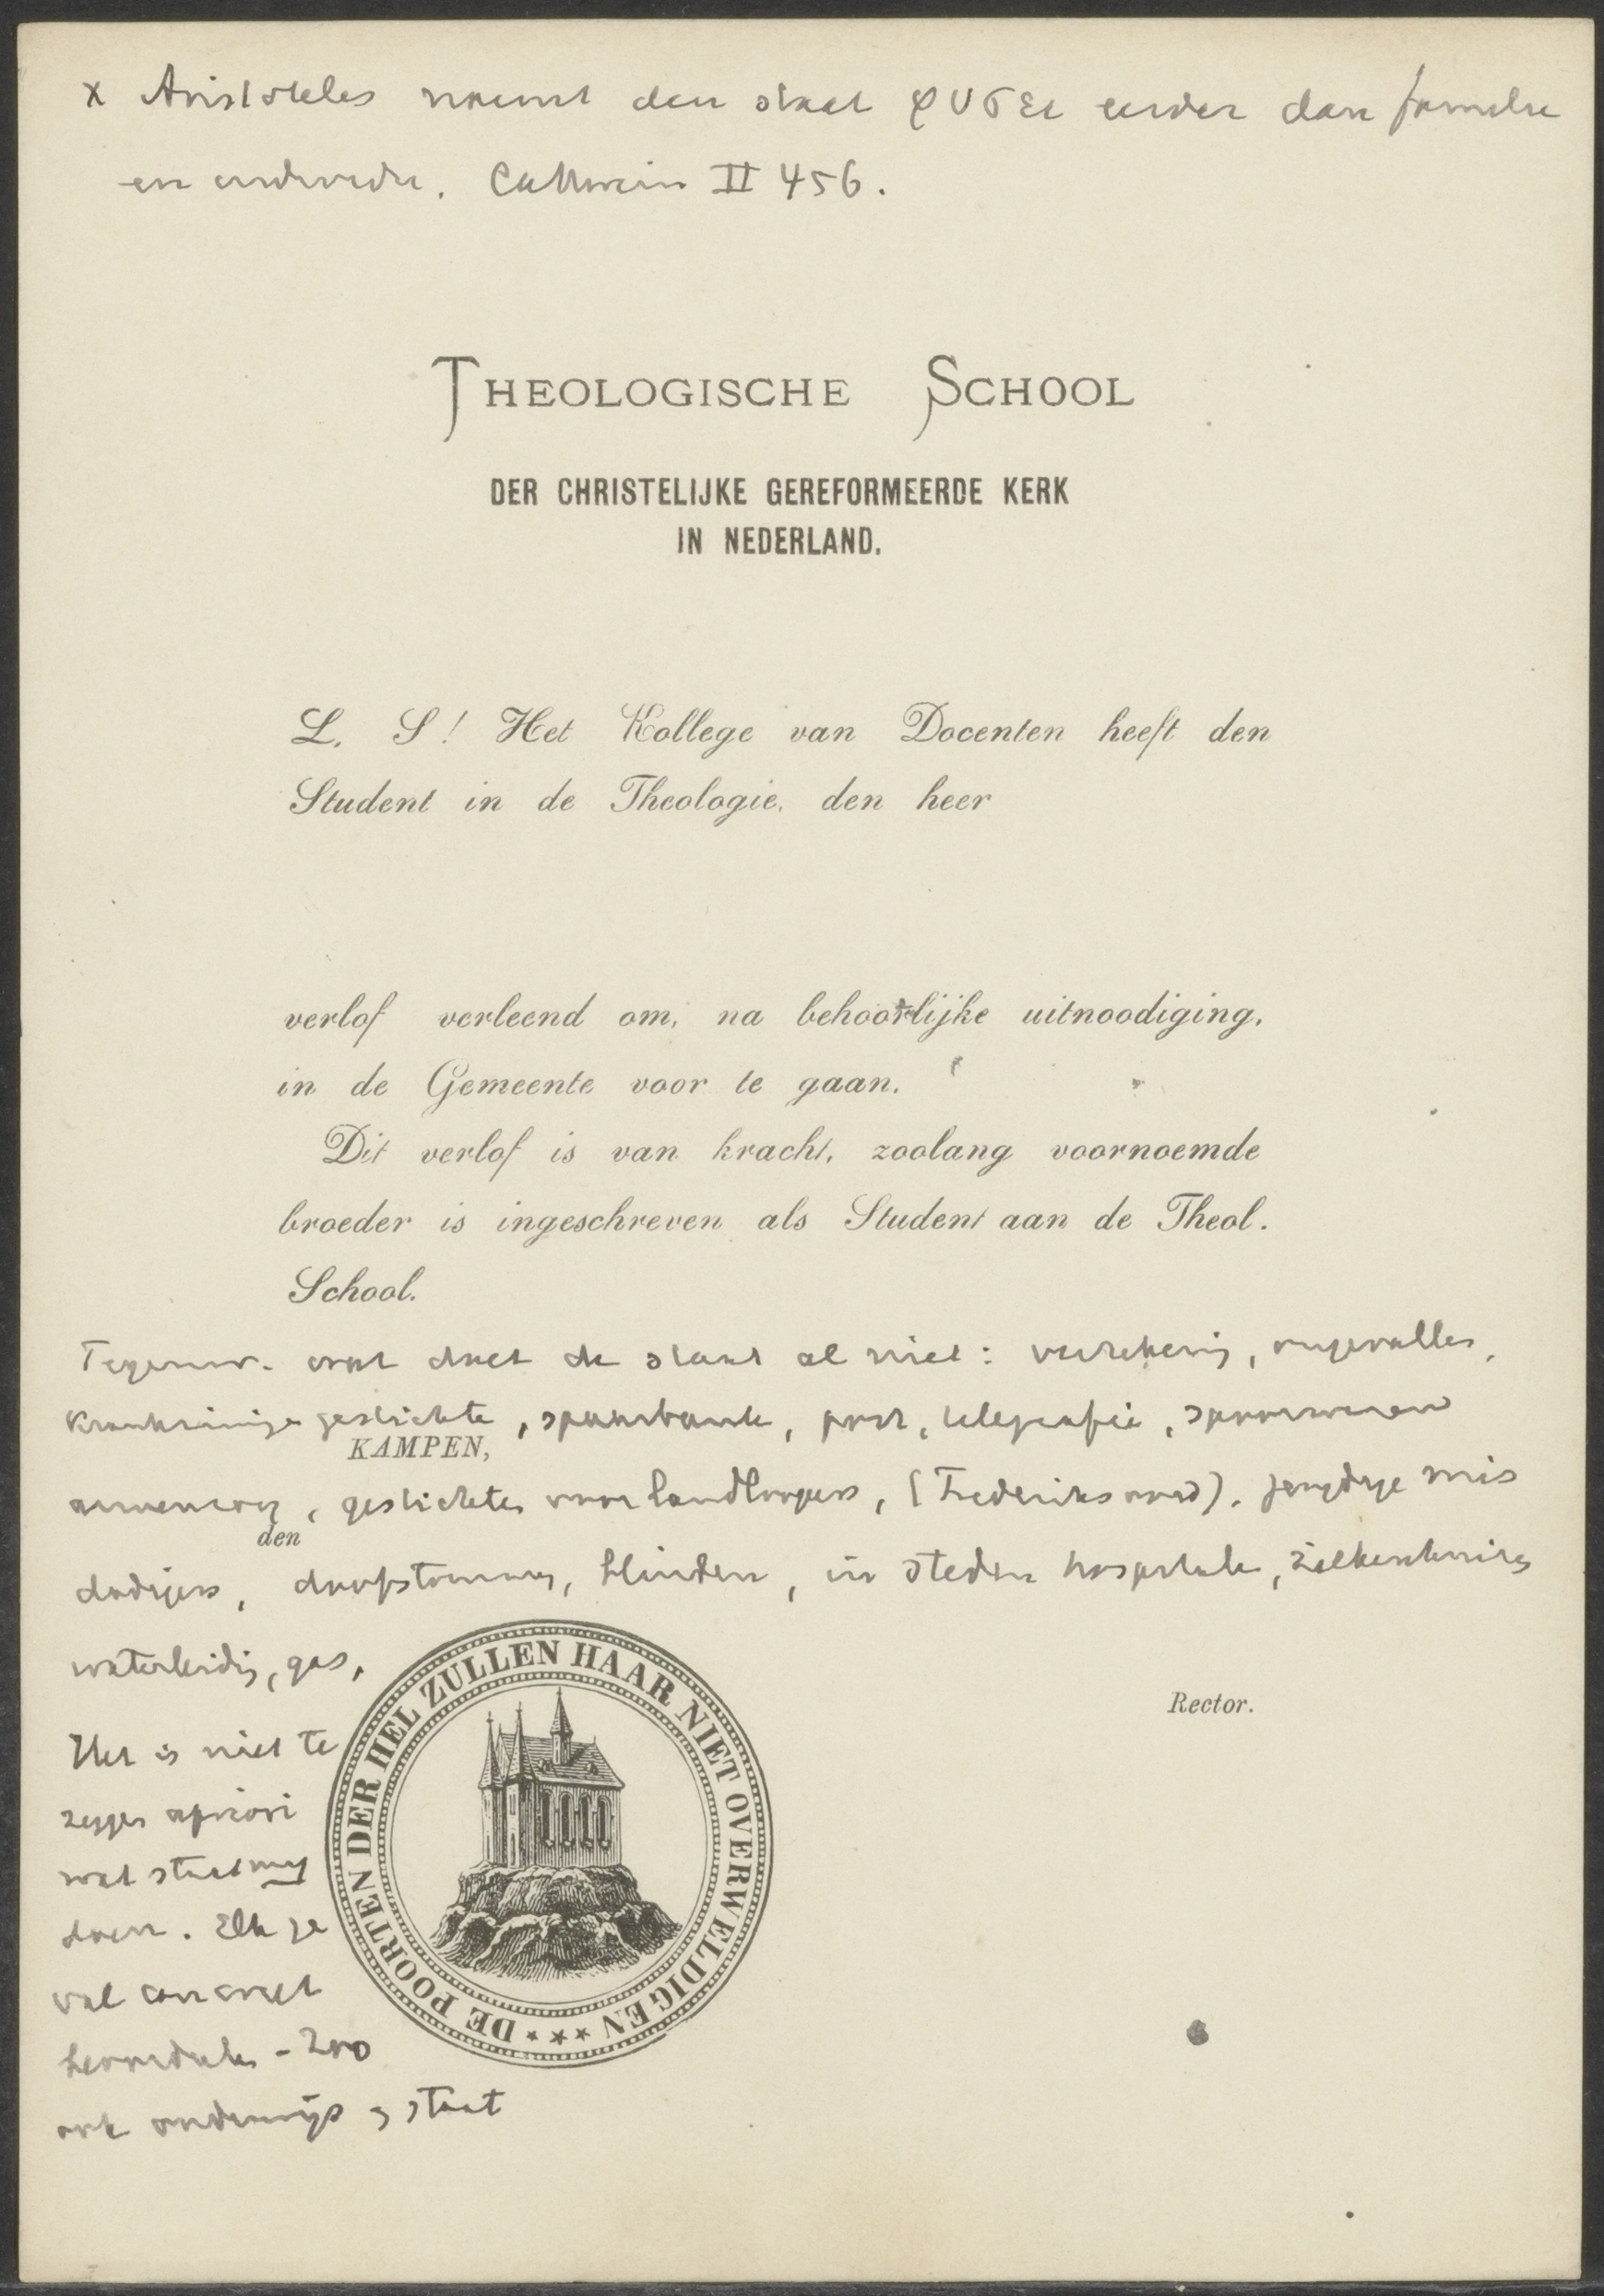 x Aristoteles noemt den staat φυσει eerder dan familie
en individu. Cathrein II 456.
THEOLOGISCHE SCHOOL
DER CHRISTELIJKE GEREFORMEERDE KERK
IN NEDERLAND.
L. S! Het Kollege van Docenten heeft den
Student in de Theologie, den heer
verlof verleend om, na behoorlijke uitnoodiging,
in de Gemeente voor te gaan.
Dit verlof is van kracht, zoolang voornoemde
broeder is ingeschreven als Student aan de Theol.
School.
Tegenw. wat doet de staat al niet: verzekering, ongevallen,
krankzinnige gestichte, spaarbank, post, telegrafie, spoorwegen
KAMPEN,
armenzorg, gestichten voor landloopers, (Frederiksoord), jeugdige mis
den
dadigers, doofstommen, blinden, in steden hospitale, ziekenhuizen
waterleiding, gas,
Het is niet te
zeggen apriori
wat staat mag
doen. Elk ge
val concreet
beoordeelen - Zoo
ook onderwijs & staat
DE POORTEN DER HEL ZULLEN HAAR NIET OVERWELDIGEN ***
Rector.